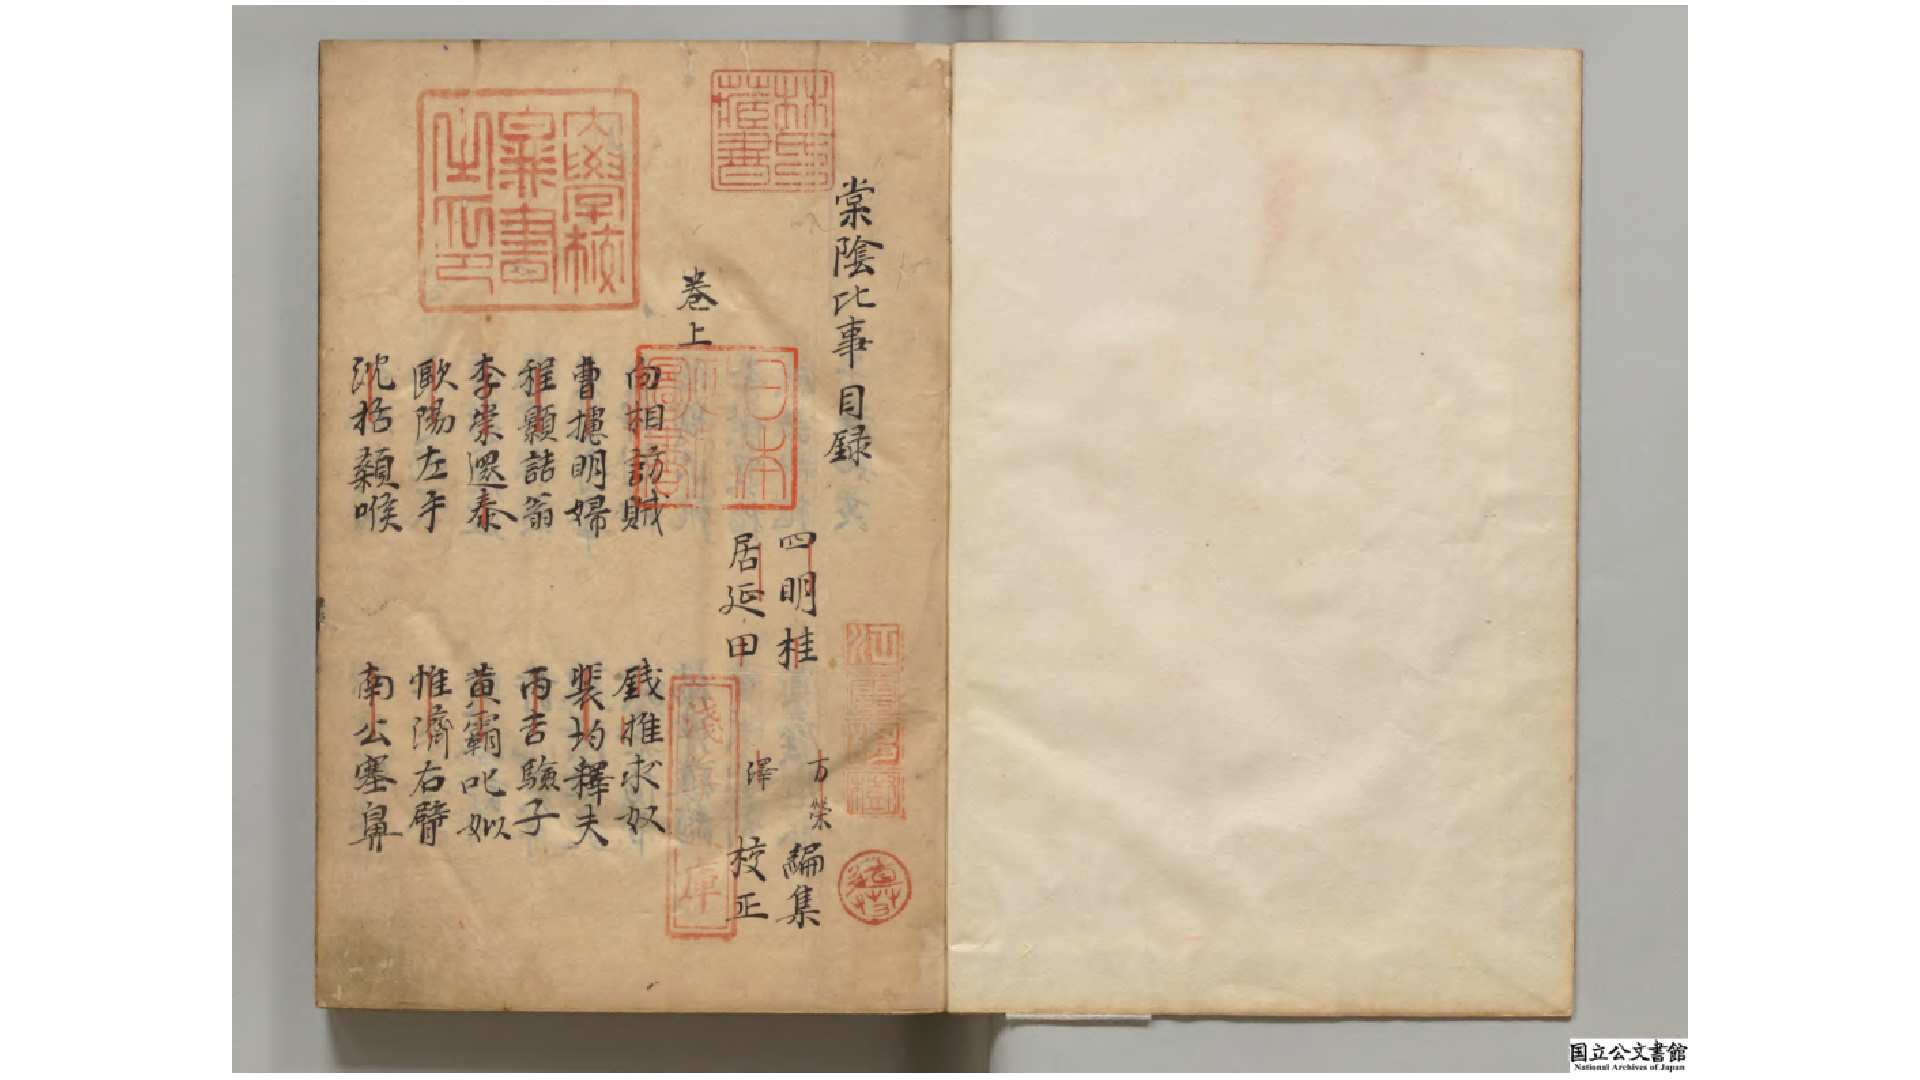 棠陰比事目録
四明桂 万榮 編集
居延田 澤 校正
巻上
向相訪賊 錢推求奴
曹攄明婦 裴均釋夫
程顥詰翁 丙吉驗子
李崇還泰 黄霸叱姒
歐陽左手 惟濟右臂
沈括顙喉 南公塞鼻
林氏藏書
日本政圖書
淺草文庫
江雲渭樹
国立公文書館
National Archives of Japan